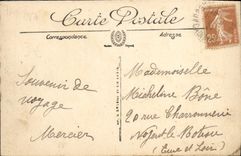 Carte Postale
Correspondance
Adresse
Souvenir de
voyage
Mercier
Mademoiselle
Micheline Bône
20 rue Charronnerie
Nogent le Rotrou
(Eure et Loir)